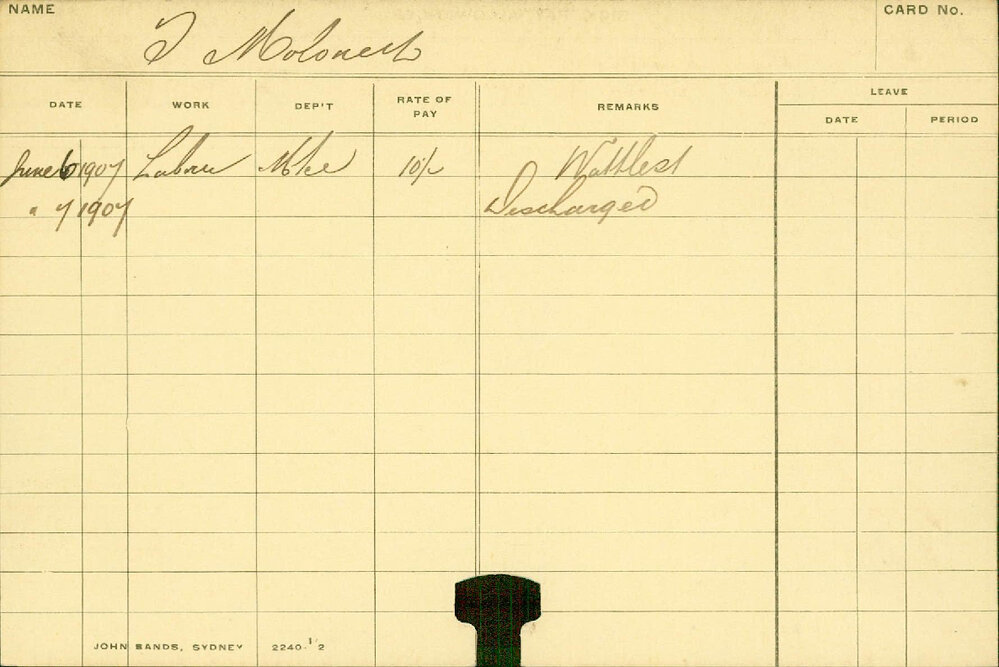 NAME
CARD No.
DATE WORK DEP'T RATE OF PAY REMARKS LEAVE
DATE PERIOD
June 6 1907 Labour 10/-
" 7 1907 Discharged
JOHN SANDS, SYDNEY 2240-1/2